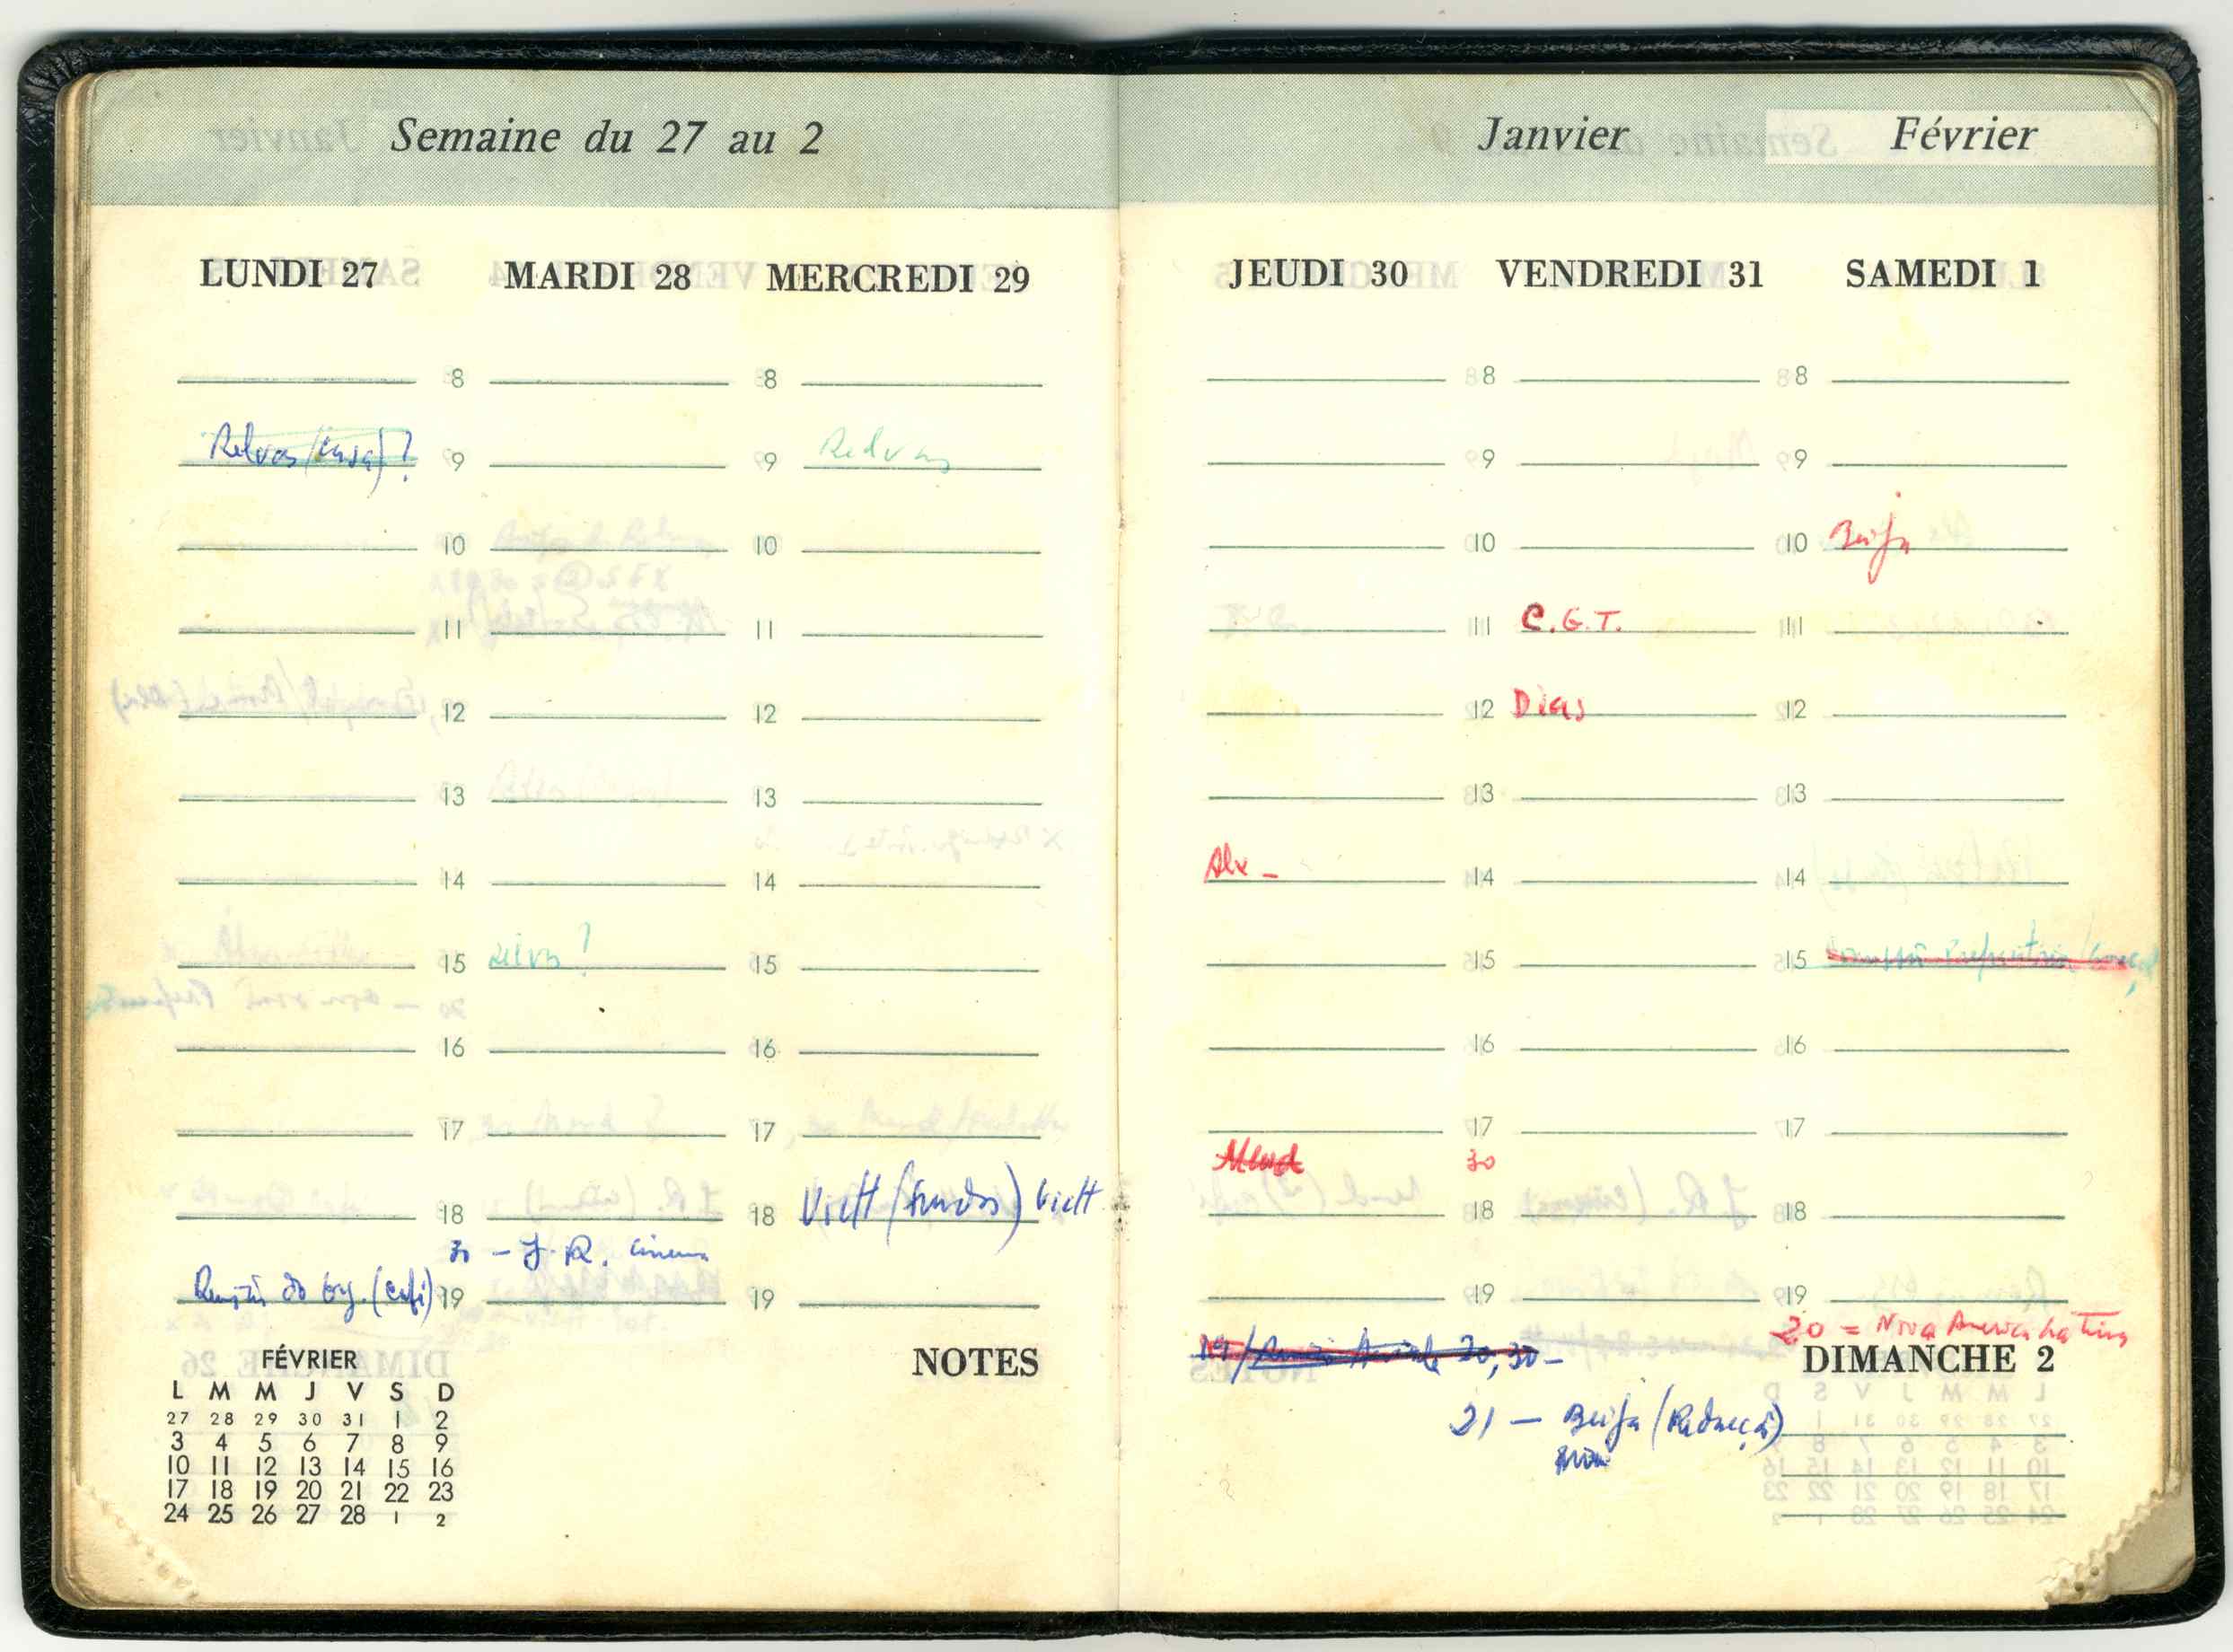 Semaine du 27 au 2
LUNDI 27 MARDI 28 MERCREDI 29
8 8
Relvas (casa)? 9 9 Relvas
10 10
11 11
12 12
13 13
14 14
15 ? 15
16 16
17 17
18 18
30 – J. R. cinema
Reunião do org. (café) 19 19
FÉVRIER
NOTES
L M M J V S D
27 28 29 30 31 1 2
3 4 5 6 7 8 9
10 11 12 13 14 15 16
17 18 19 20 21 22 23
24 25 26 27 28 1 2
Janvier Février
JEUDI 30 VENDREDI 31 SAMEDI 1
8 8
9 9
10 10 Beija
11 C.G.T. 11
12 Dias 12
13 13
Alx – 14 14
15 15
16 16
17 17
Mend 30
18 18
19 19
20 = Nova
20,30 –
DIMANCHE 2
21 – Beija (Redacção)